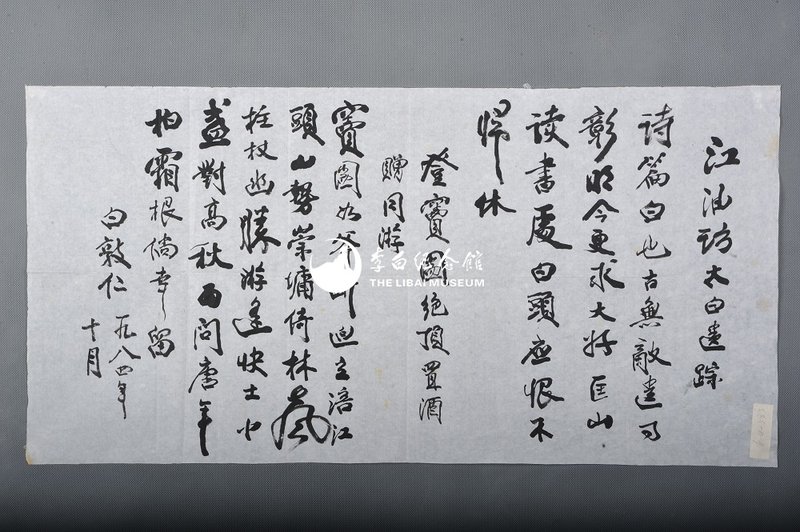 江油访太白遗踪
诗篇白也古无敌遗事
彰明今更求大好匡山
读书处白头应恨不
归休
登窦圌绝顶置酒
赠同游
窦圌如 迎立涪江
头山势崇墉倚林
拄杖幽勝游逢快士小
盏對高秋为问唐年
柏霜根尚孛留
白敦仁一九八四年
十月
李白纪念馆
THE LIBAI MUSEUM